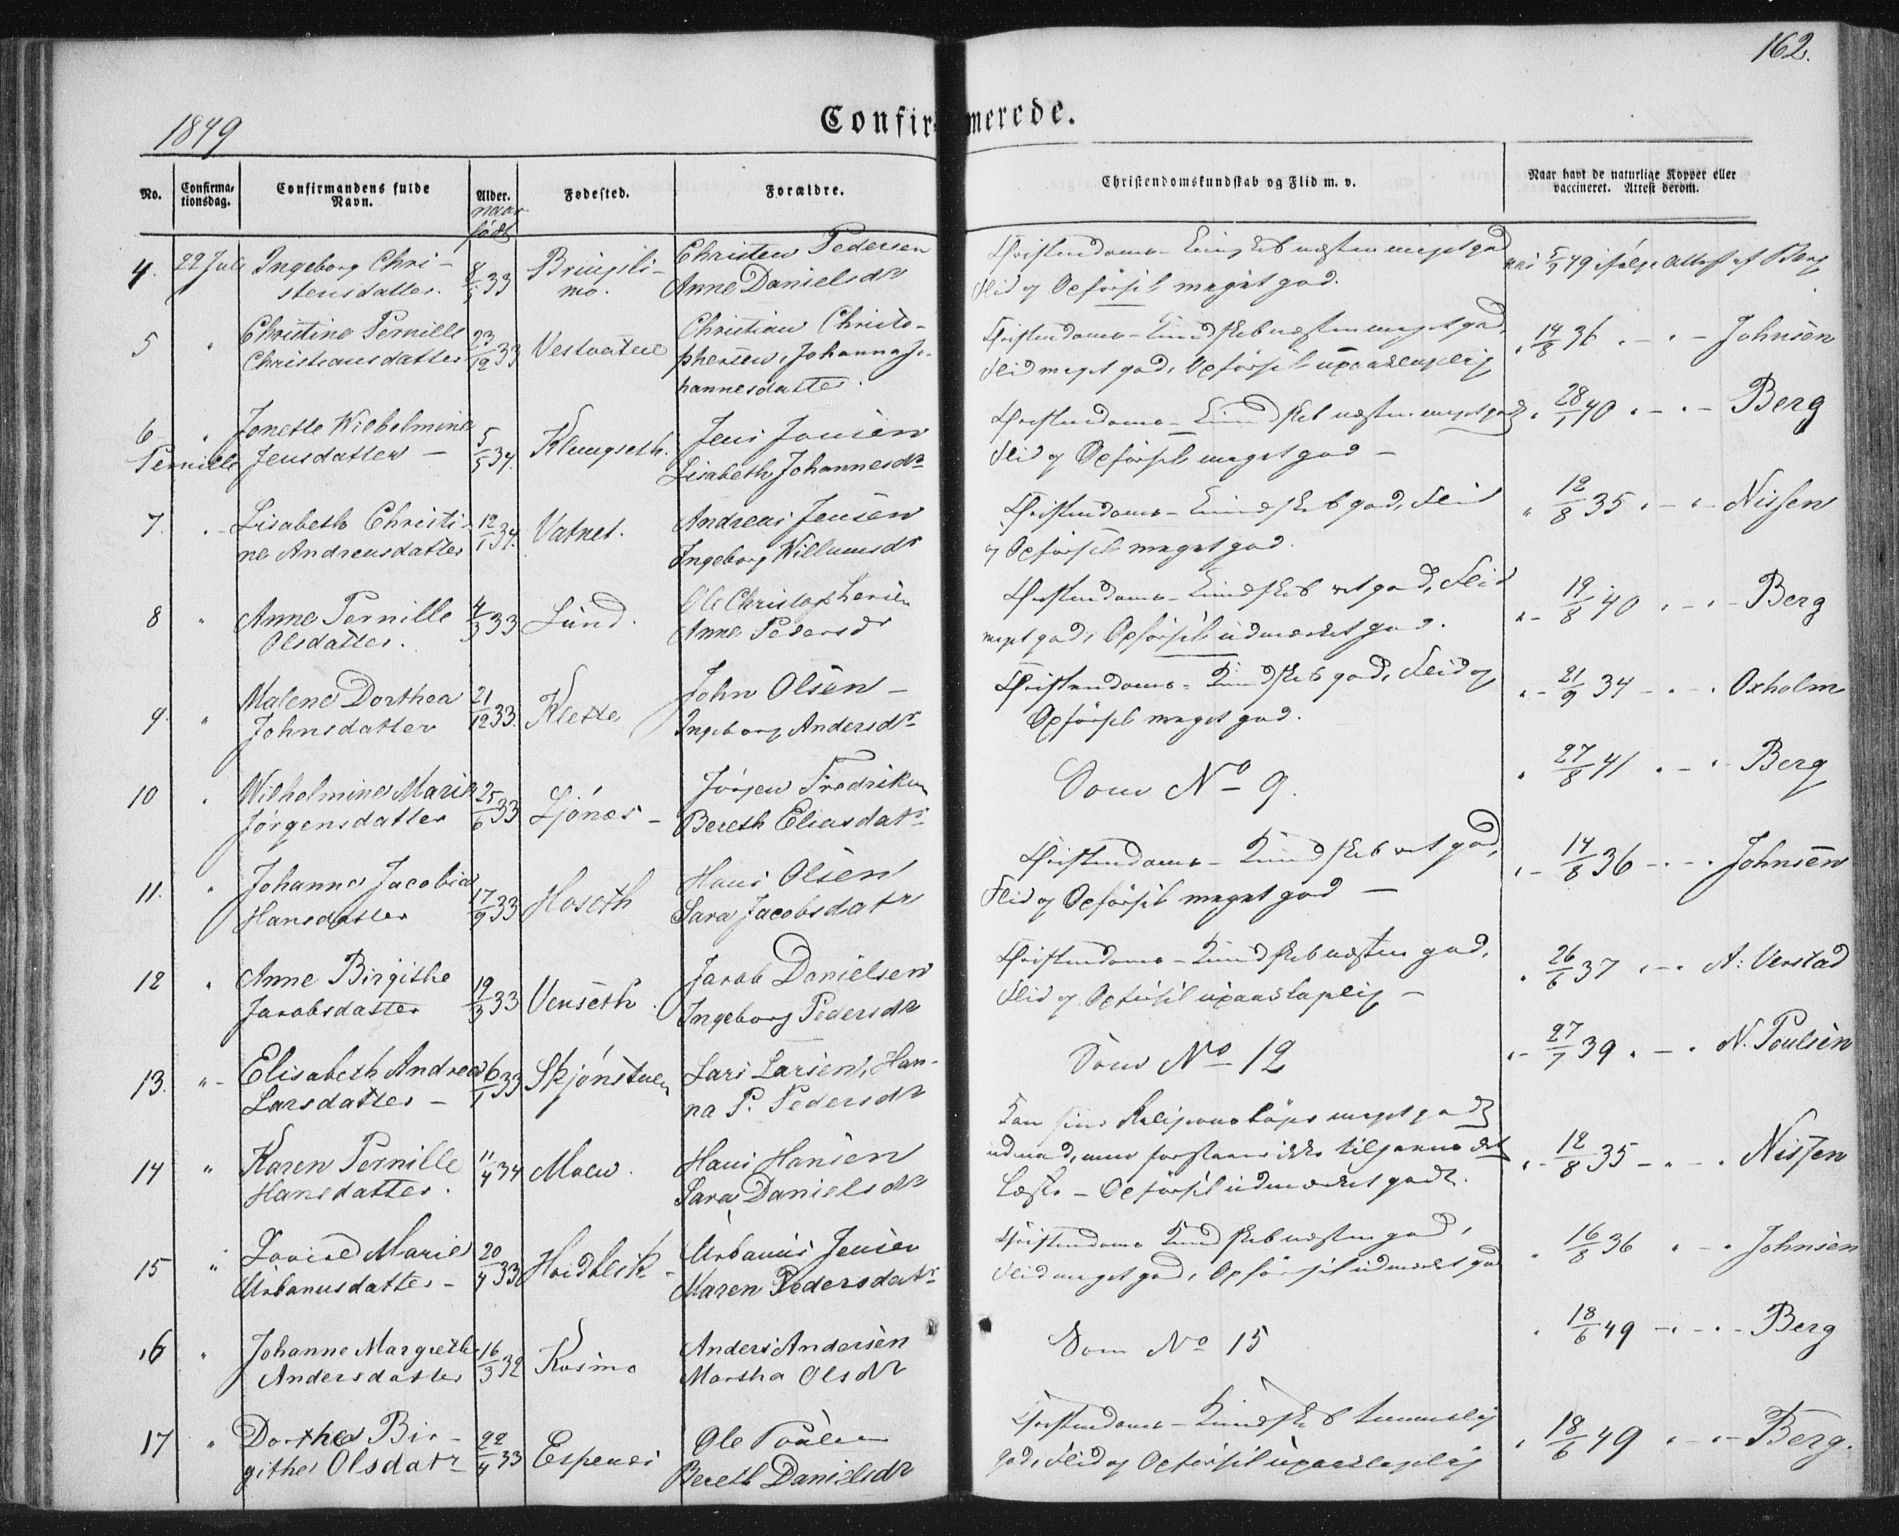 162.
1849
Confirmerede.
No.
Confirma-
tionsdag.
Confirmandens fulde
Navn.
Alder.
naar
født
Fødested.
Forældre.
Christendomskundskab og Flid m. v.
Naar havt de naturlige Kopper eller
vaccineret. Attest derom.
4. 22 Juli Ingeborg Chri- 33 Christen Pedersen Christendoms- Kundskab næsten meget god
stensdatter. Anne Danielsdr Flid og Opførsel meget god.
5/7 49 ifølge Attest af Berg
5 " Christine Pernille 23/12 33 Vestvatne Christian Christo- Christendoms- Kundskab næsten meget god,
Christiansdatter phersen, Johanna Jo- Flid meget god, Opførsel upaaklagelig
hannesdatter.
" 14/8 36 " - " - Johnsen
6 " Jonette Wilhelmine 5/5 34. Klungseth. Jens Jensen Christendoms- Kundskab næsten meget god
Pernille Jensdatter - Lisabeth Johannesdr Flid og Opførsel meget god -
" 28/1 40 " - " - Berg
7. " Lisabeth Christi- 12/1 34. Vatnet. Andreas Jensen Christendoms- Kundskab god, Flid
ne Andreasdatter Ingeborg Willumsdr og Opførsel meget god.
" 12/8 35 " - " - Nissen
8 " Anne Pernille 4/3 33 Lund. Ole Christophersen Christendoms- Kundskab ret god, Flid
Olsdatter. Anne Pedersdr meget god, Opførsel udmærket god.
" - 19/8 40 " - " - Berg
9. " Malene Dorthea 21/12 33. Klette John Olsen - Christendoms- Kundskab god, Flid og
Johnsdatter Ingeborg Andersdr Opførsel meget god.
" - 21/9 34 - " - " Oxholm
10 " Wilhelmine Marie 25/6 33 Ljønes - Jørgen Fredriksen Som No 9.
Jørgensdatter Bereth Eliasdatr
" 27/8 41 " - " - Berg
11. " Johanna Jacobia 17/9 33 Hoseth Hans Olsen Christendoms- Kundskab ret god,
Hansdatter Sara Jacobsdatr Flid og Opførsel meget god -
" - 14/8 36 - " - " Johnsen
12 " Anne Birgithe 19/3 33 Venseth. Jacob Danielsen Christendoms- Kundskab næsten god,
Jacobsdatter Ingeborg Pedersdr Flid og Opførsel upaaklagelig -
" 26/6 37 " - " A: Verstad
13. " - Elisabeth Andrea 6/1 33 Skjønstuen Lars Larsen, Han- Som No 12
Larsdatter - na P. Pedersdr
" - 27/7 39 " - " N. Poulsen
14 " Karen Pernille 11/4 34 Moen. Hans Hansen Kan sine Religionsbøger meget godt
Hansdatter. Sara Danielsdr udenad, men forstaaer ikke tilgavns det
Læste - Opførsel udmærket godt.
" - 12/8 35 - " - " Nissen
15 " Lovise Marie 20/4 33 Urbanus Jensen Christendoms Kundskab næsten god,
Urbanusdatter - Maren Pedersdatr Flid meget god, Opførsel udmærket god
" 16/8 36 " - " Johnsen
16 " Johanna Margrethe 16/3 32 Kosmo Anders Andersen Som No 15
Andersdatter Martha Olsdr
" 18/6 49 - " - " - Berg
17 " Dorthea Bir- 22/4 33 Espenes Ole Poulsen Christendoms- Kundskab temmelig
githe Olsdatr Bereth Danielsdr god, Flid og Opførsel upaaklagelig
" 18/6 49 " - " - Berg.